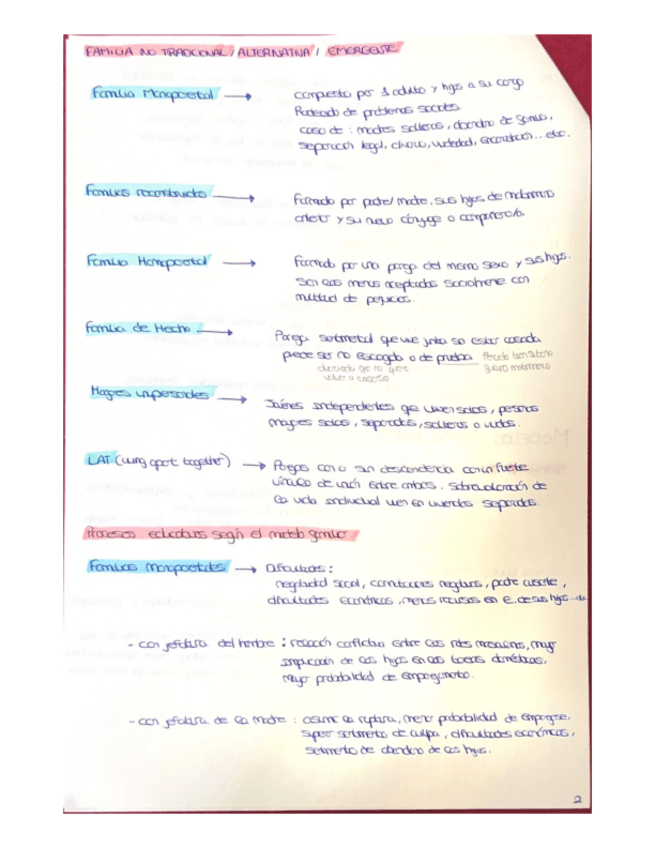 FAMILIA NO TRADICIONAL / ALTERNATIVA / EMERGENTE
Familia Monoparental → compuesto por 1 adulto y hijos a su cargo
Rodeado de problemas sociales
caso de : madres solteras, abandono de familia,
separación legal, divorcio, viudedad, encarcelación... etc.
Familias reconstituidas → Formado por padre/madre, sus hijos de matrimonio
anterior y su nuevo cónyuge o compañero/a.
Familia Homoparental → Formado por una pareja del mismo sexo y sus hijos.
Son las menos aceptadas socialmente con
multitud de prejuicios.
Familia de Hecho → Pareja sentimental que vive junta sin estar casada
puede ser no escogida o de prueba
Hogares unipersonales → Jóvenes independientes que viven solos, personas
mayores solas, separados, solteros o viudos.
LAT (living apart together) → Parejas con o sin descendencia con un fuerte
vínculo de unión entre ambos. Sobrevaloración de
la vida individual viven en viviendas separadas.
Procesos educativos según el modelo familiar
Familias monoparentales → Dificultades :
negatividad social, connotaciones negativas, padre ausente,
dificultades económicas, menos recursos en E. de sus hijos...etc
- con jefatura del hombre : relación conflictiva entre los roles masculinos, mayor
implicación de los hijos en las tareas domésticas.
Mayor probabilidad de emparejamiento.
- con jefatura de la madre : asume la ruptura, menor probabilidad de emparejarse.
Superar sentimiento de culpa, dificultades económicas,
sentimiento de abandono de los hijos.
2